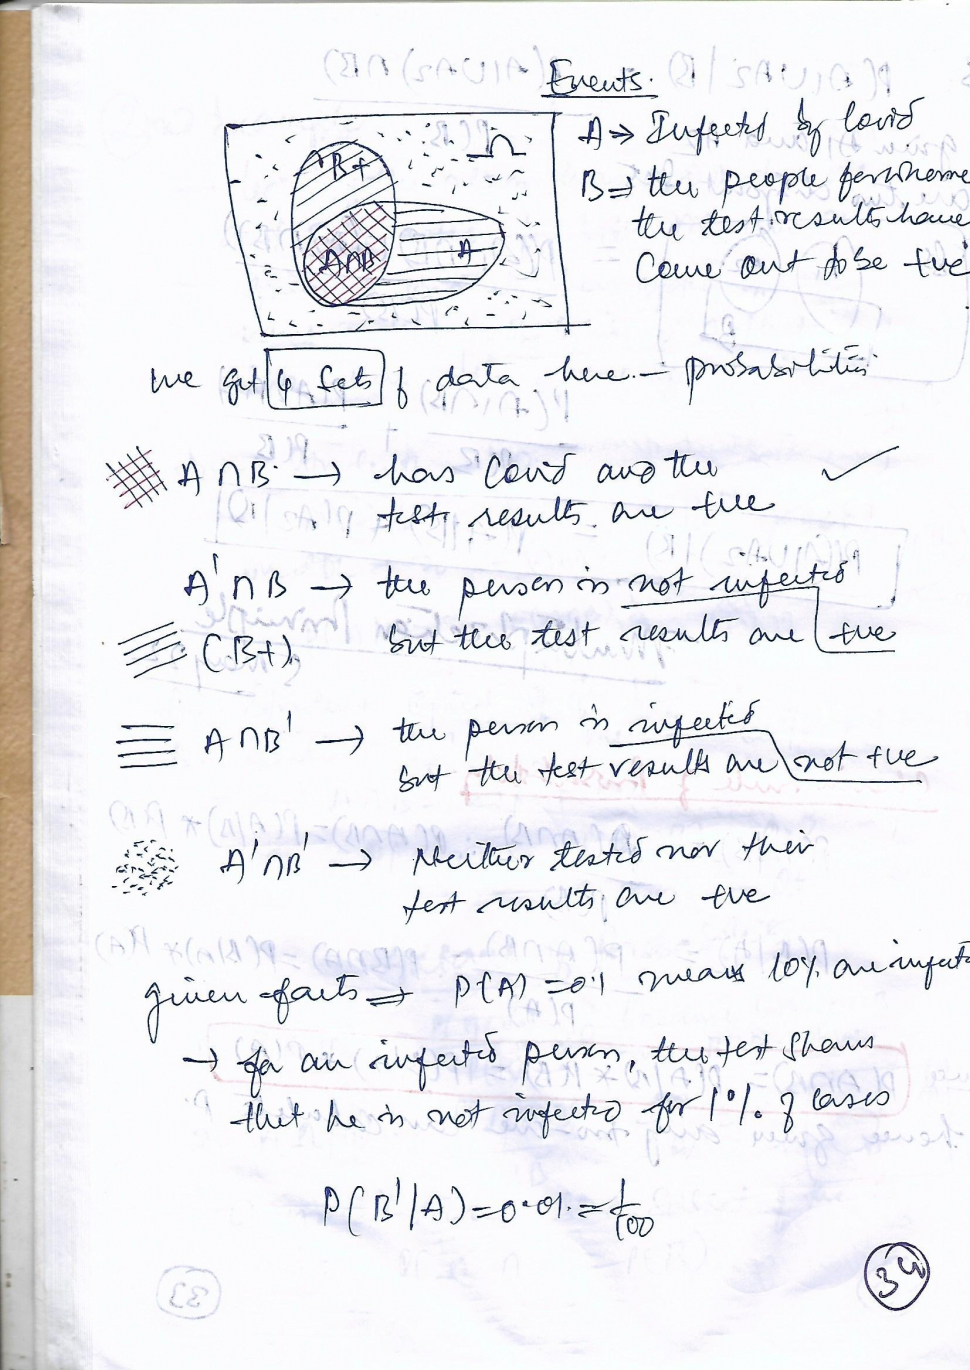 Events.
Ω
B+
A∩B
A
A => Infected by Covid
B => the people for whome
the test results have
Come out to be +ve
we get 4 sets of data here — probabilities
A∩B → has Covid and the
test results are +ve
A'∩B → the person is not infected
(B+) but the test results are +ve
A∩B' → the person is infected
but the test results are not +ve
A'∩B' → Neither tested nor their
test results are +ve
given facts => P(A) = 0.1 means 10% are infect
→ for an infected person, the test shows
that he is not infected for 1% of cases
P(B'|A) = 0.01 = 1/100
34
33